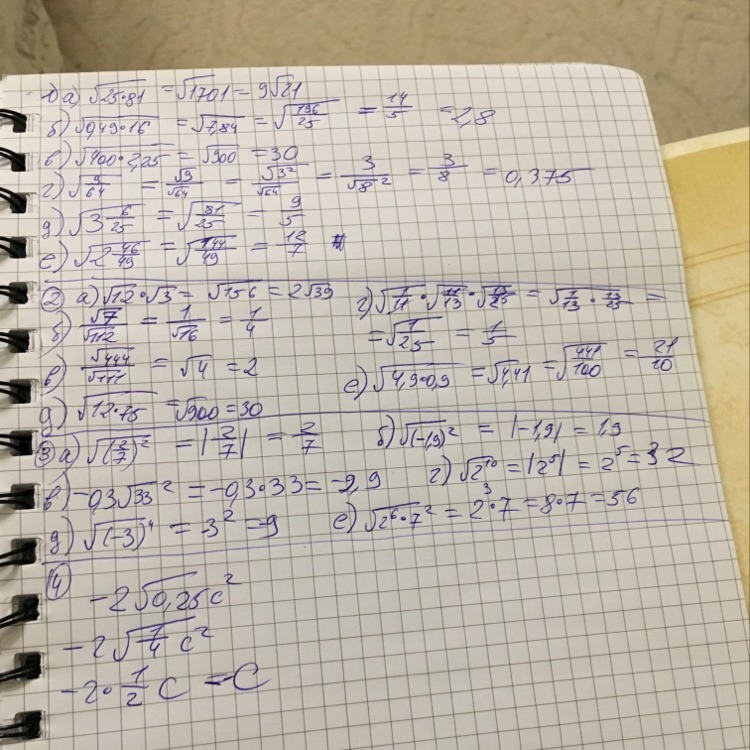 1) а) √25·81 = √1701 = 9√21
б) √0,49·16 = √7,84 = √196/25 = 14/5 = 2,8
в) √400·2,25 = √900 = 30
г) √9/64 = √9/√64 = √3²/√64 = 3/√8² = 3/8 = 0,375
д) √3 6/25 = √81/25 = 9/5
е) √2 46/49 = √144/49 = 12/7
2 а) √12·√3 = √156 = 2√39
б) √7/√112 = 1/√16 = 1/4
в) √444/√111 = √4 = 2
д) √12·75 = √900 = 30
г) √7/11·√11/13·√13/25 = √7/13·13/25 =
= √1/25 = 1/5
е) √4,9·0,9 = √4,41 = √441/100 = 21/10
3 а) √(2/7)² = |2/7| = 2/7 б) √(-1,9)² = |-1,9| = 1,9
в) -0,3√33² = -0,3·33 = -9,9 г) √2¹⁰ = |2⁵| = 2⁵ = 32
д) √(-3)⁴ = -3² = -9 е) √2⁶·7² = 2³·7 = 8·7 = 56
4
-2√0,25c²
-2√1/4 c²
-2·1/2 c = -c